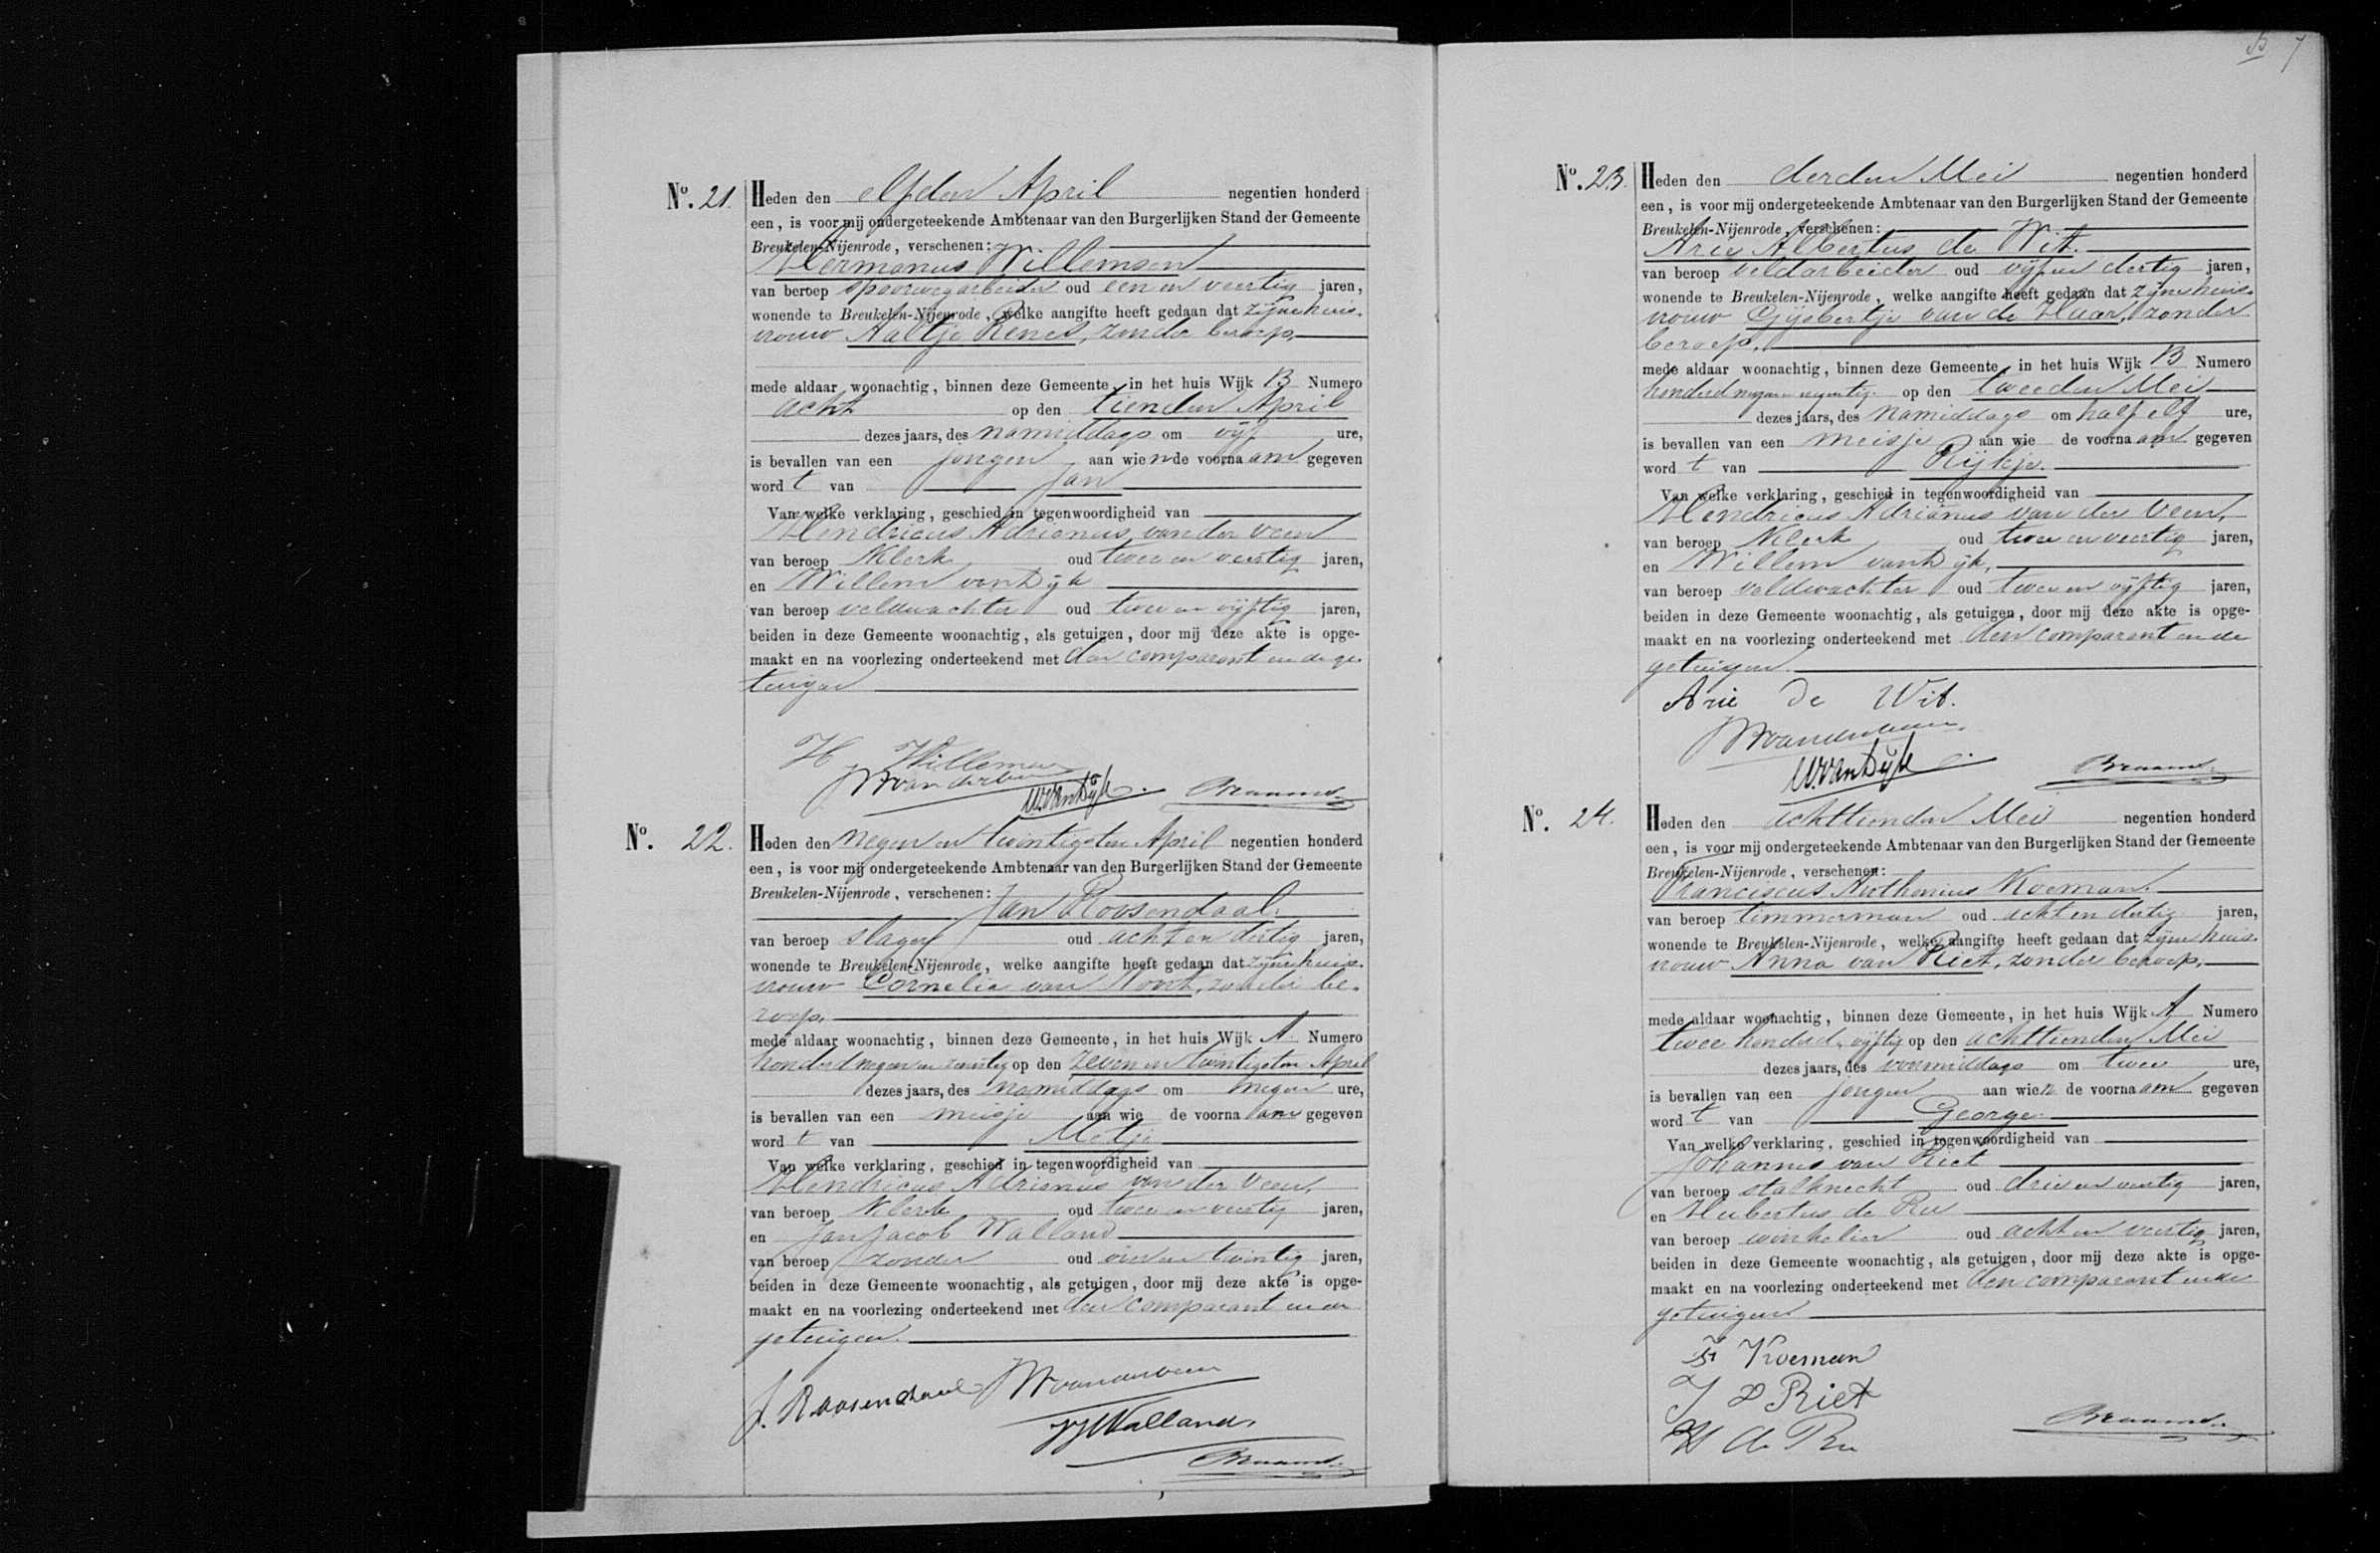 No. 21. Heden den elfden April negentien honderd
een, is voor mij ondergeteekende Ambtenaar van den Burgerlijken Stand der Gemeente
Breukelen-Nijenrode, verschenen:
Hermanus Willemsen
van beroep spoorwegarbeider oud een en veertig jaren,
wonende te Breukelen-Nijenrode, welke aangifte heeft gedaan dat zijne huis-
vrouw Aaltje Renes, zonder beroep,
mede aldaar woonachtig, binnen deze Gemeente, in het huis Wijk B Numero
acht op den tienden April
dezes jaars, des namiddags om vijf ure,
is bevallen van een jongen aan wien de voornaam gegeven
wordt van Jan
Van welke verklaring, geschied in tegenwoordigheid van
Hendricus Adrianus van der Veen
van beroep Klerk oud twee en veertig jaren,
en Willem van Dijk
van beroep veldwachter oud twee en vijftig jaren,
beiden in deze Gemeente woonachtig, als getuigen, door mij deze akte is opge-
maakt en na voorlezing onderteekend met den comparant en de ge-
tuigen
H Willemsen
HA van der Veen
W. van Dijk.
No. 22. Heden den negen en twintigsten April negentien honderd
een, is voor mij ondergeteekende Ambtenaar van den Burgerlijken Stand der Gemeente
Breukelen-Nijenrode, verschenen:
Jan Roosendaal.
van beroep slager oud acht en dertig jaren,
wonende te Breukelen-Nijenrode, welke aangifte heeft gedaan dat zijne huis-
vrouw Cornelia van Noort, zonder be-
roep,
mede aldaar woonachtig, binnen deze Gemeente, in het huis Wijk A. Numero
honderd negen en op den zeven en twintigsten April
dezes jaars, des namiddags om negen ure,
is bevallen van een meisje aan wie de voornaam gegeven
wordt van Metje
Van welke verklaring, geschied in tegenwoordigheid van
Hendricus Adrianus van der Veen,
van beroep Klerk oud twee en veertig jaren,
en Jan Jacob Walland
van beroep zonder oud en twintig jaren,
beiden in deze Gemeente woonachtig, als getuigen, door mij deze akte is opge-
maakt en na voorlezing onderteekend met den comparant en de
getuigen.
J. Roosendaal HA van der Veen
JJ Walland
No. 23. Heden den derden Mei negentien honderd
een, is voor mij ondergeteekende Ambtenaar van den Burgerlijken Stand der Gemeente
Breukelen-Nijenrode, verschenen:
Arie Albertus de Wit.
van beroep veldarbeider oud vijf en dertig jaren,
wonende te Breukelen-Nijenrode, welke aangifte heeft gedaan dat zijne huis-
vrouw Gijsbertje van de Haar, zonder
beroep,
mede aldaar woonachtig, binnen deze Gemeente, in het huis Wijk B Numero
honderd negen en negentig op den tweeden Mei
dezes jaars, des namiddags om half elf ure,
is bevallen van een meisje aan wie de voornaam gegeven
wordt van Rijkje.
Van welke verklaring, geschied in tegenwoordigheid van
Hendricus Adrianus van der Veen,
van beroep Klerk oud twee en veertig jaren,
en Willem van Dijk,
van beroep veldwachter oud twee en vijftig jaren,
beiden in deze Gemeente woonachtig, als getuigen, door mij deze akte is opge-
maakt en na voorlezing onderteekend met den comparant en de
getuigen.
Arie de Wit.
HA van der Veen
W. van Dijk
No. 24. Heden den achttienden Mei negentien honderd
een, is voor mij ondergeteekende Ambtenaar van den Burgerlijken Stand der Gemeente
Breukelen-Nijenrode, verschenen:
Franciscus Anthonius Koeman.
van beroep timmerman oud acht en dertig jaren,
wonende te Breukelen-Nijenrode, welke aangifte heeft gedaan dat zijne huis-
vrouw Anna van Riet, zonder beroep,
mede aldaar woonachtig, binnen deze Gemeente, in het huis Wijk A Numero
twee honderd vijftig op den achttienden Mei
dezes jaars, des voormiddags om twee ure,
is bevallen van een jongen aan wien de voornaam gegeven
wordt van George
Van welke verklaring, geschied in tegenwoordigheid van
Johannes van Riet
van beroep stalknecht oud drie en veertig jaren,
en Hubertus de Ru
van beroep winkelier oud acht en veertig jaren,
beiden in deze Gemeente woonachtig, als getuigen, door mij deze akte is opge-
maakt en na voorlezing onderteekend met den comparant en de
getuigen
Koeman
J v Riet
H de Ru